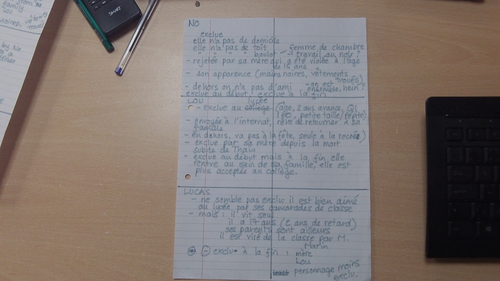 NO
exclue
elle n'a pas de domicile
elle n'a pas de toit
femme de chambre
travail au noir ?
- rejetée par sa mère qui a été violée à l'âge
de 15 ans
- son apparence (mains noires, vêtements
- dehors on n'a pas d'ami
exclue au début, exclue à la fin
LOU
- exclue au lycée (âge, 2 ans avance, QI
160, petite taille)
- envoyée à l'internat, mère de retourner à sa
famille
- en dehors, va pas à la fête, seule à la récré
- exclue par sa mère depuis la mort
subite de Thaïs
- exclue au début mais à la fin elle
rentre au sein de sa famille, elle est
plus acceptée au collège.
LUCAS
- ne semble pas exclu il est bien aimé
au lycée par ses camarades de classe
- mais : il vit seul
il a 17 ans (2 ans de retard)
ses parents sont ailleurs
il est viré de la classe par M.
Marin
exclu à la fin : mère
Lou
personnage moins
exclu.